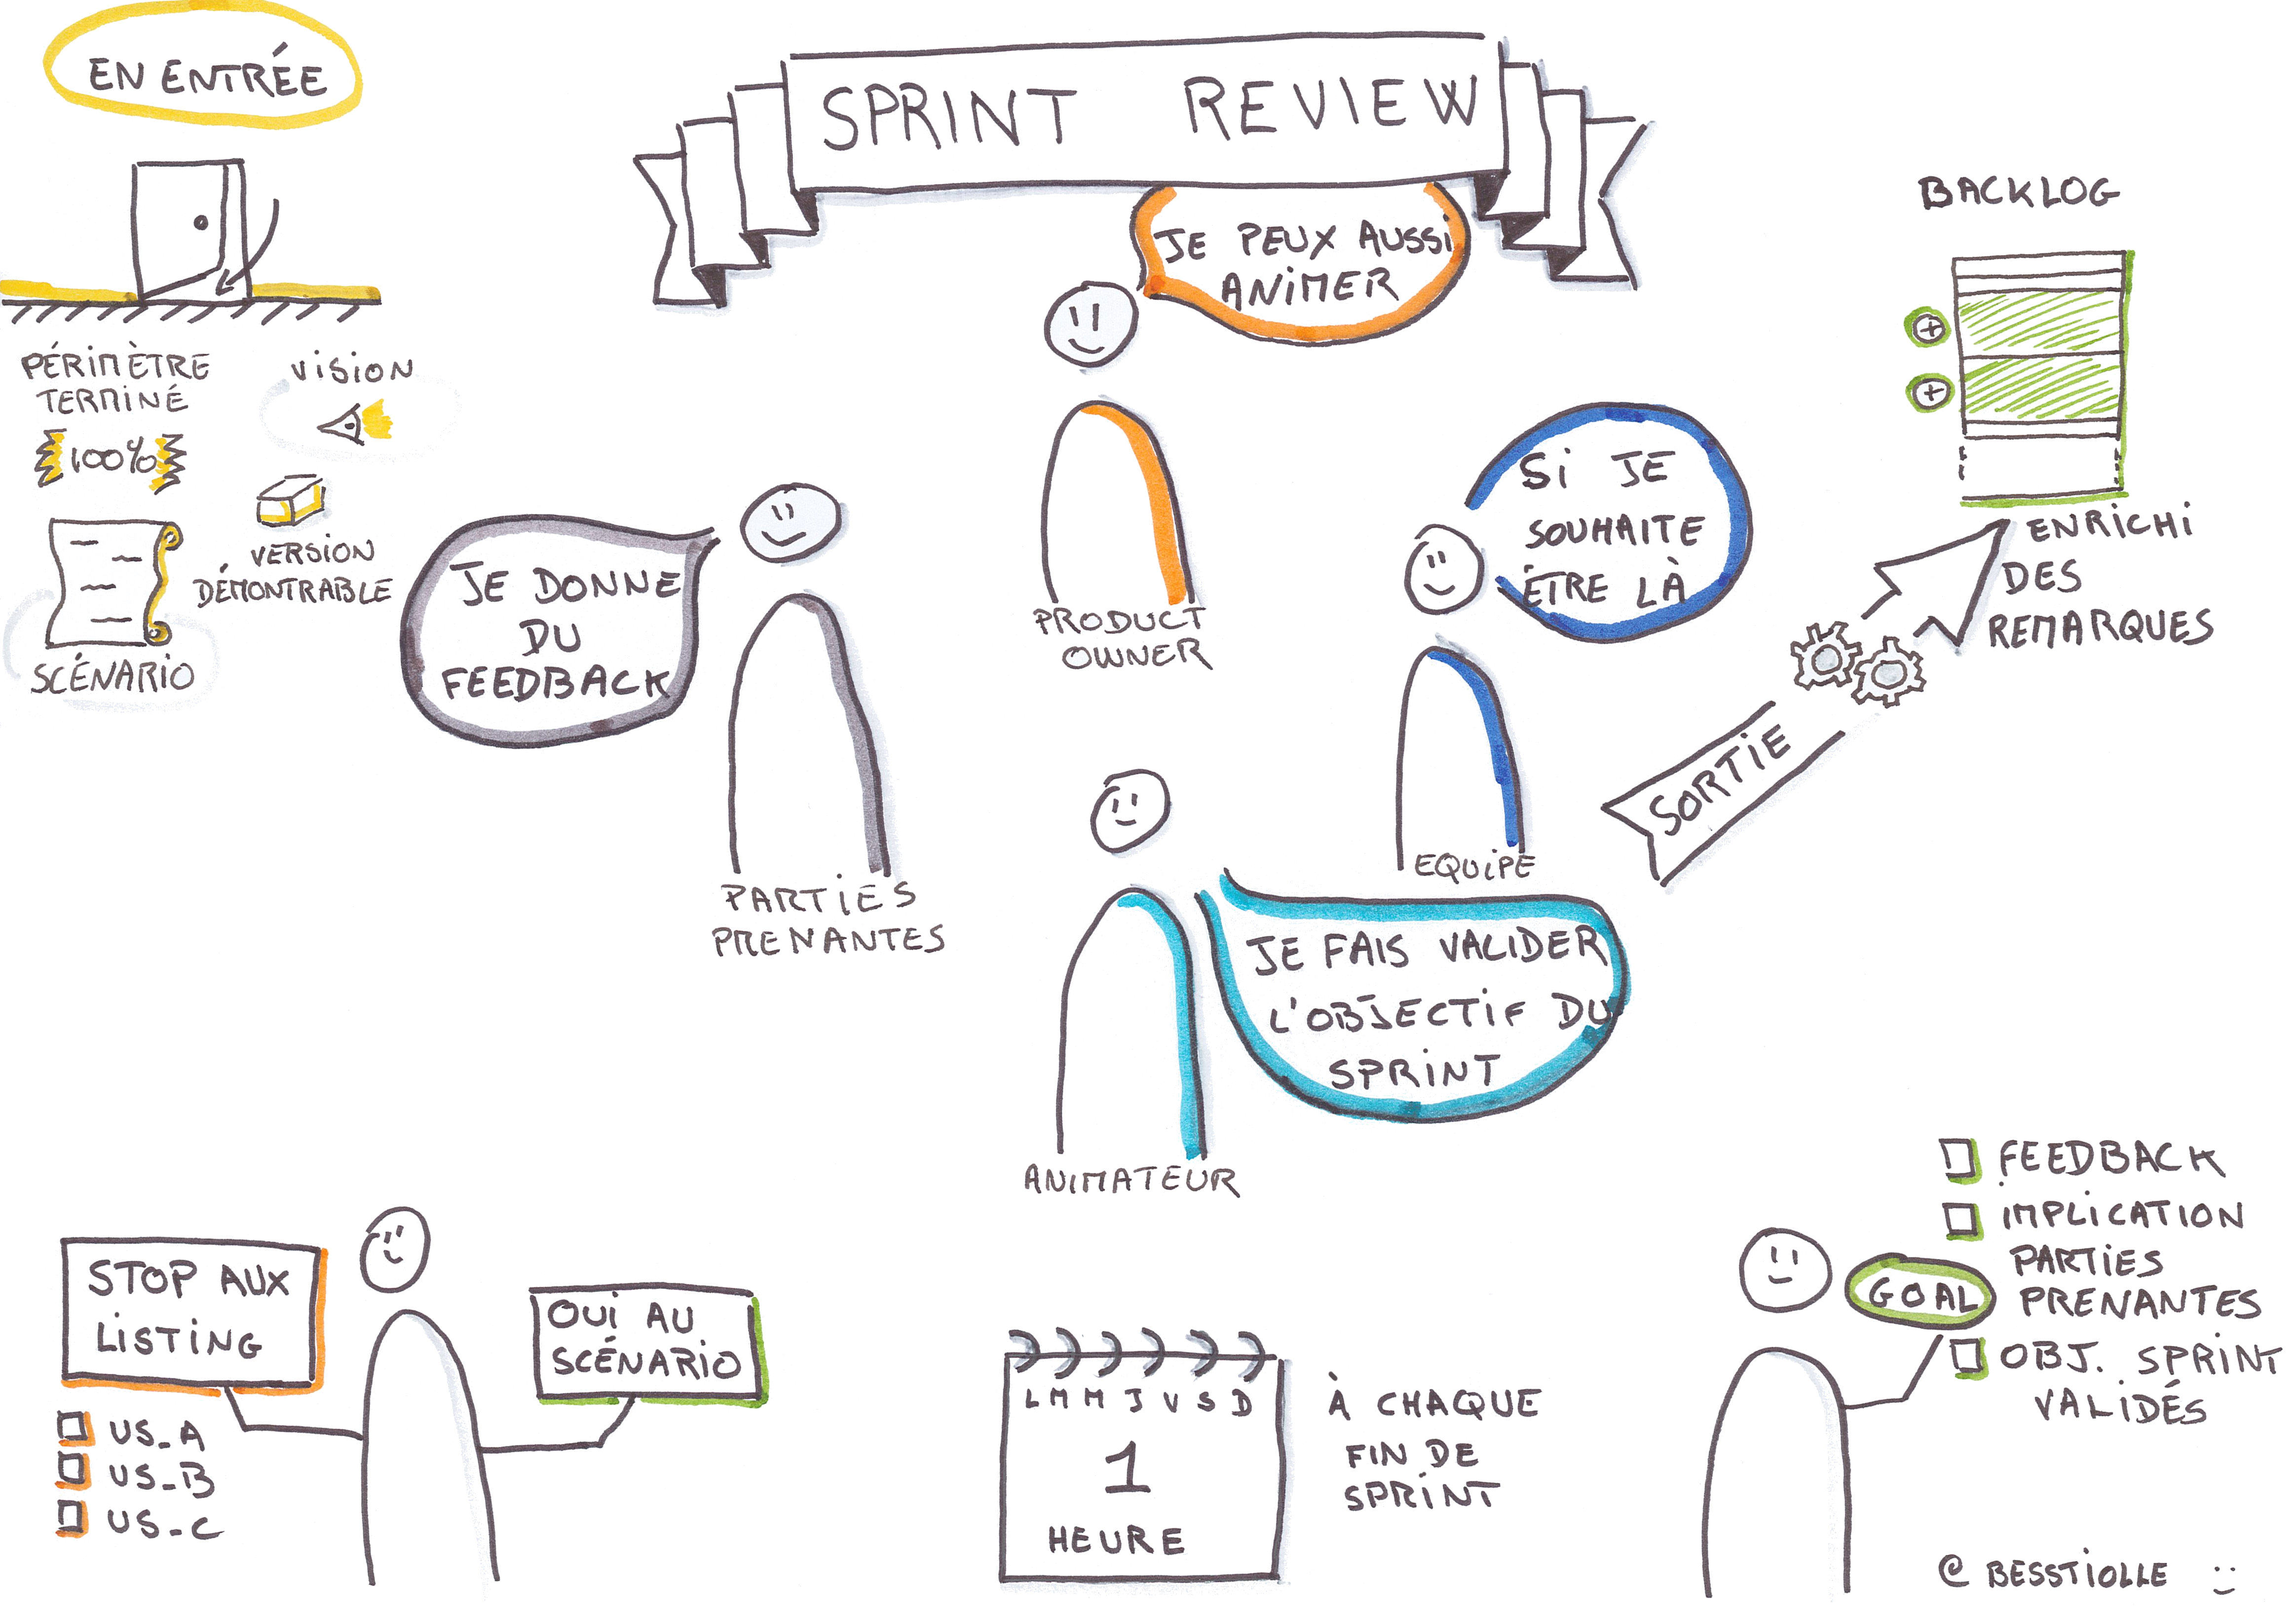 EN ENTRÉE
SPRINT REVIEW
JE PEUX AUSSI
ANIMER
BACKLOG
PÉRIMÈTRE
TERMINÉ
100%
VISION
VERSION
DÉMONTRABLE
SCÉNARIO
JE DONNE
DU
FEEDBACK
PARTIES
PRENANTES
PRODUCT
OWNER
SI JE
SOUHAITE
ÊTRE LÀ
EQUIPE
ENRICHI
DES
REMARQUES
SORTIE
JE FAIS VALIDER
L'OBJECTIF DU
SPRINT
ANIMATEUR
STOP AUX
LISTING
US_A
US_B
US_C
OUI AU
SCÉNARIO
L M M J V S D
1
HEURE
À CHAQUE
FIN DE
SPRINT
GOAL
FEEDBACK
IMPLICATION
PARTIES
PRENANTES
OBJ. SPRINT
VALIDÉS
@ BESSTIOLLE